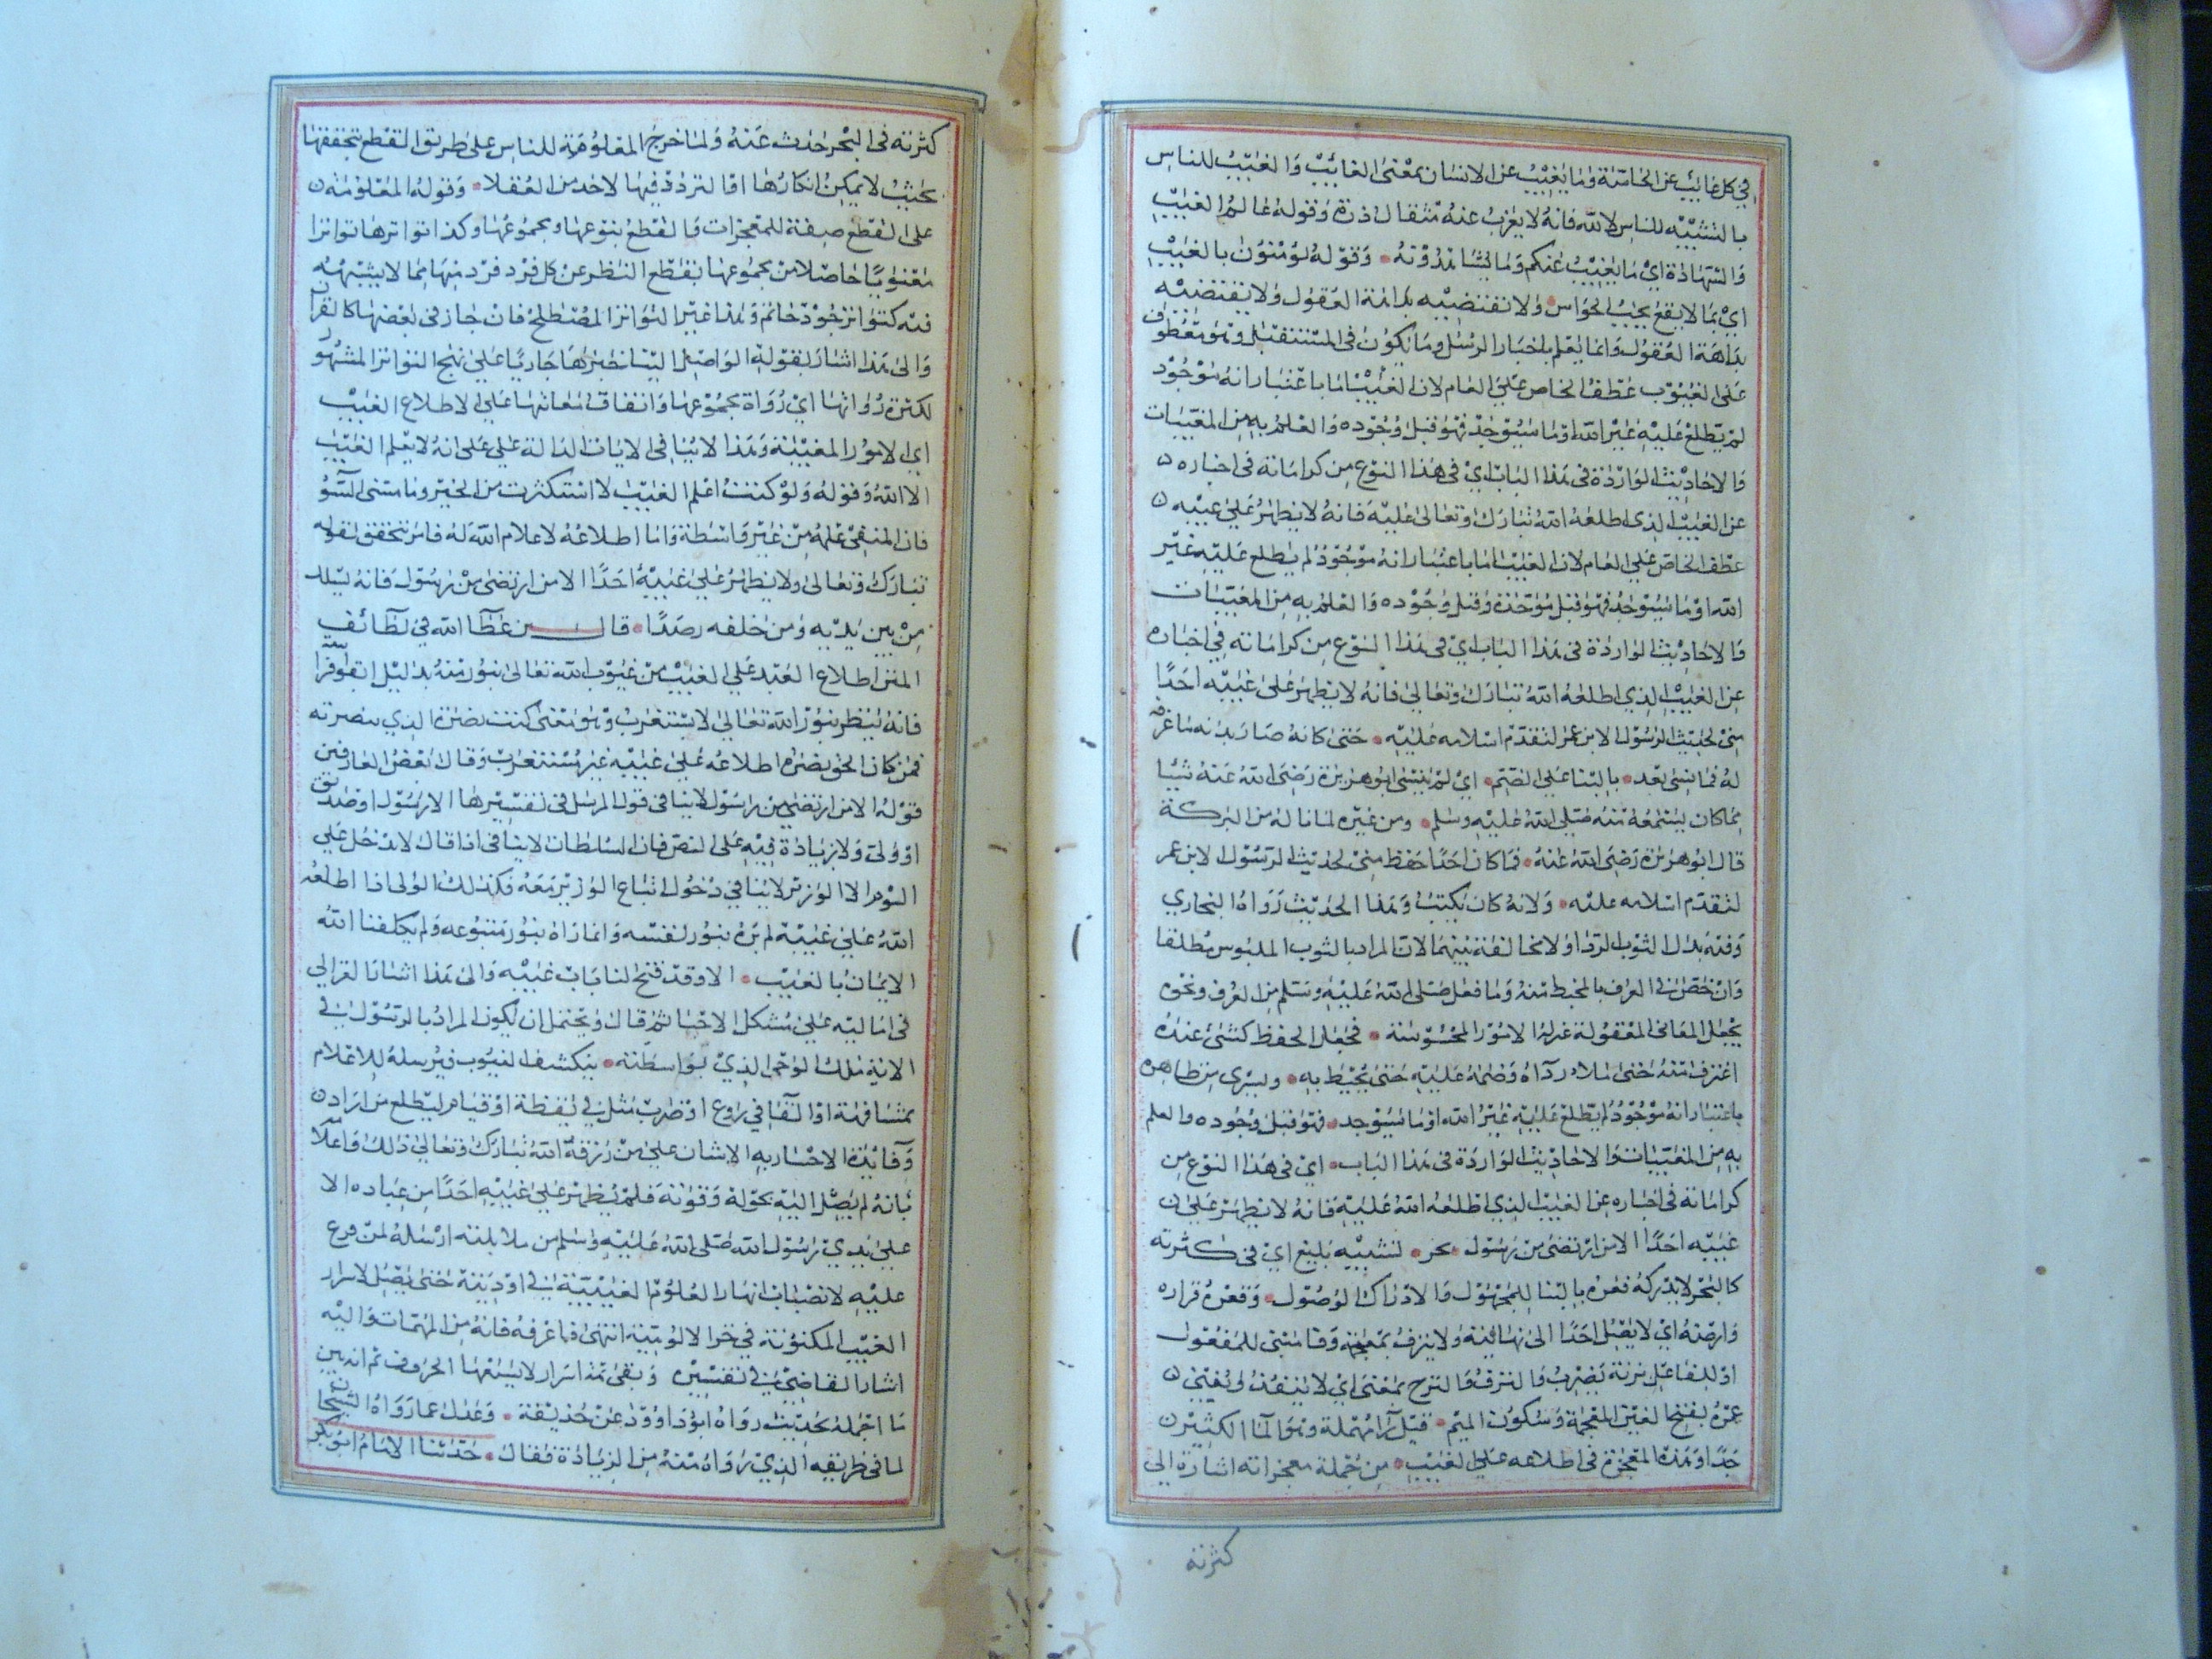 في كل غايب عن الحاسة وما يغيب عن الانسان بمعنى الغائب والغيب للناس
بالنسبة للناس لا لله فانه لا يعزب عنه مثقال ذرة وقوله عالم الغيب
والشهادة اي ما يغيب عنكم وما تشاهدونه وقوله يؤمنون بالغيب
اي بما لا يقع تحت الحواس ولا تقتضيه بداهة العقول ولا تقتضيه
بداهة العقول وانما يعلم باخبار الرسل وما يكون في المستقبل وهو معطوف
على الغيوب عطف الخاص على العام لان الغيب اما باعتبار انه موجود
لم يطلع عليه غير الله او ما سيوجد فهو قبل وجوده والعلم به من المغيبات
والاحاديث الواردة في هذا الباب اي في هذا النوع من كراماته في اخباره
عن الغيب الذي اطلعه الله تبارك وتعالى عليه فانه لا يظهر على غيبه
عطف الخاص على العام لان الغيب اما باعتبار انه موجود لم يطلع عليه غير
الله او ما سيوجد فهو قبل وقبل وجوده والعلم به من المغيبات
والاحاديث الواردة في هذا الباب اي في هذا النوع من كراماته في اخباره
عن الغيب الذي اطلعه الله تبارك وتعالى فانه لا يظهر على غيبه احدا
مني لحديث الرسول الا ابن عمر لتقدم اسلامه عليه حتى كانه صار
له فما نسي بعد بالبنا على الضم اي لم ينس ابو هريرة رضي الله عنه شيا
مما كان يسمعه منه صلى الله عليه وسلم ومن غيره لما ناله من البركة
قال ابو هريرة رضي الله عنه فما كان احدا حفظ مني لحديث الرسول الا ابن عمر
لتقدم اسلامه عليه ولانه كان يكتب وهذا الحديث رواه البخاري
وفيه بدل الثوب الرداء ولا مخالفة بينهما لان المراد بالثوب الملبوس مطلقا
وان خص في العرف بالمخيط منه وما فعل صلى الله عليه وسلم من الغرف ونحوه
يجعل المعاني المعقولة الامور المحسوسة فجعل الحفظ كشئ عنده
اغترف منه حتى ملا رداه وضمه عليه حتى يحيط به ويسري من ظاهره
باعتبار انه موجود لم يطلع عليه غير الله او ما سيوجد فهو قبل وجوده والعلم
به من المغيبات والاحاديث الواردة في هذا الباب اي في هذا النوع من
كراماته في اخباره عن الغيب الذي اطلعه الله عليه فانه لا يظهر على
غيبه احدا الا من ارتضى من رسول بحر تشبيه بليغ اي في كثرته
كالبحر لا يدرك قعره بالبنا للمجهول والادراك الوصول وقعره قراره
وارضه اي لا يصل احدا الى نهايته ولا ينزف وقا مبني للمفعول
او للفاعل بزنة يضرب والنزف والنزح بمعنى اي لا ينفد ولا يفنى
غمره بفتح الغين المعجمة وسكون الميم قبل را مهملة وهو الما الكثير
جدا وهذه المعجزة في اطلاعه على الغيب من جملة معجزاته اشارة الى
كثرته
كثرته في البحر حدث عنه ولما خرج المعلومة للناس على طريق القطع بتحققها
بحيث لا يمكن انكارها او التردد فيها لاحد من العقلا وقوله المعلومة
على القطع صفة للمعجزات والقطع بنوعها ومجموعها وكذا تواترها تواترا
معنويا حاصلا من مجموعها بقطع النظر عن كل فرد فرد منها مما لا يشبه
فيه كتواتر جود حاتم وهذا غير التواتر المصطلح فان جاز في بعضها كالقران
والى هذا اشار بقوله الواصل الينا خبرها جاريا على نهج التواتر المشهور
لكثرة رواتها اي رواة مجموعها واتفاق معانيها على الاطلاع الغيب
اي الامور المغيبة وهذا لا ينافي الايات الدالة على على انه لا يعلم الغيب
الا الله وقوله ولو كنت اعلم الغيب لاستكثرت من الخير وما مسني السو
فان المنفي علمه من غير واسطة واما اطلاعه لاعلام الله له فامر تحقق لقوله
تبارك وتعالى ولا يظهر على غيبه احدا الا من ارتضى من رسول فانه يسلك
من بين يديه ومن خلفه رصدا قال ابن عطا الله في لطائف
المنن اطلاع العبد على الغيب من غيوب الله تعالى بنور منه بدليل اتقوا فراسة
فانه ينظر بنور الله تعالى لا يستغرب وهو معنى كنت بصره الذي يبصر به
فمن كان الحق بصره اطلاعه على غيبه غير مستغرب وقال بعض العارفين
قوله الا من ارتضى من رسول لا ينافي قول المرسل في تفسيرها الا رسول او صديق
او ولي ولا زيادة فيه على النص فان السلطان لا ينافي اذا قال لا يدخل علي
اليوم الا الوزير لا ينافي دخول اتباع الوزير معه فكذلك الولي اذا اطلعه
الله على غيبه لم يره بنور نفسه وانما راه بنور متبوعه ولم يكلفنا الله
الايمان بالغيب الا وقد فتح لنا باب غيبه والى هذا اشار الغزالي
في اماليه على مشكل الاحيا ثم قال ويحتمل ان يكون المراد بالرسول في
الاية ملك الوحي الذي بواسطته ينكشف الغيوب فيرسله للاعلام
بمشافهة او القا في روع او ضرب مثل في يقظة او منام ليطلع من اراد
وفائدة الاخبار به الامتنان على من رزقه الله تبارك وتعالى ذلك واعلامه
بانه لم يصل اليه بحوله وقوته فلم يظهر على غيبه احدا من عباده الا
على يدي رسول الله صلى الله عليه وسلم من ملائكته ارسله لمن فرغ
عليه لانصباب انهار العلوم الغيبية في اوديته حتى يصل لاسرار
الغيب المكنونة في خزائن الالوهية انتهى فاعرفه فانه من المهمات واليه
اشار القاضي في تفسيره وبقي هنا اسرار لا يسعها الحروف ثم انه بين
ما اجمله بحديث رواه ابو داوود عن حذيفة وعدل عما رواه الشيخان
لما في طريقه الذي رواه منه من الزيادة فقال حدثنا الامام ابو بكر